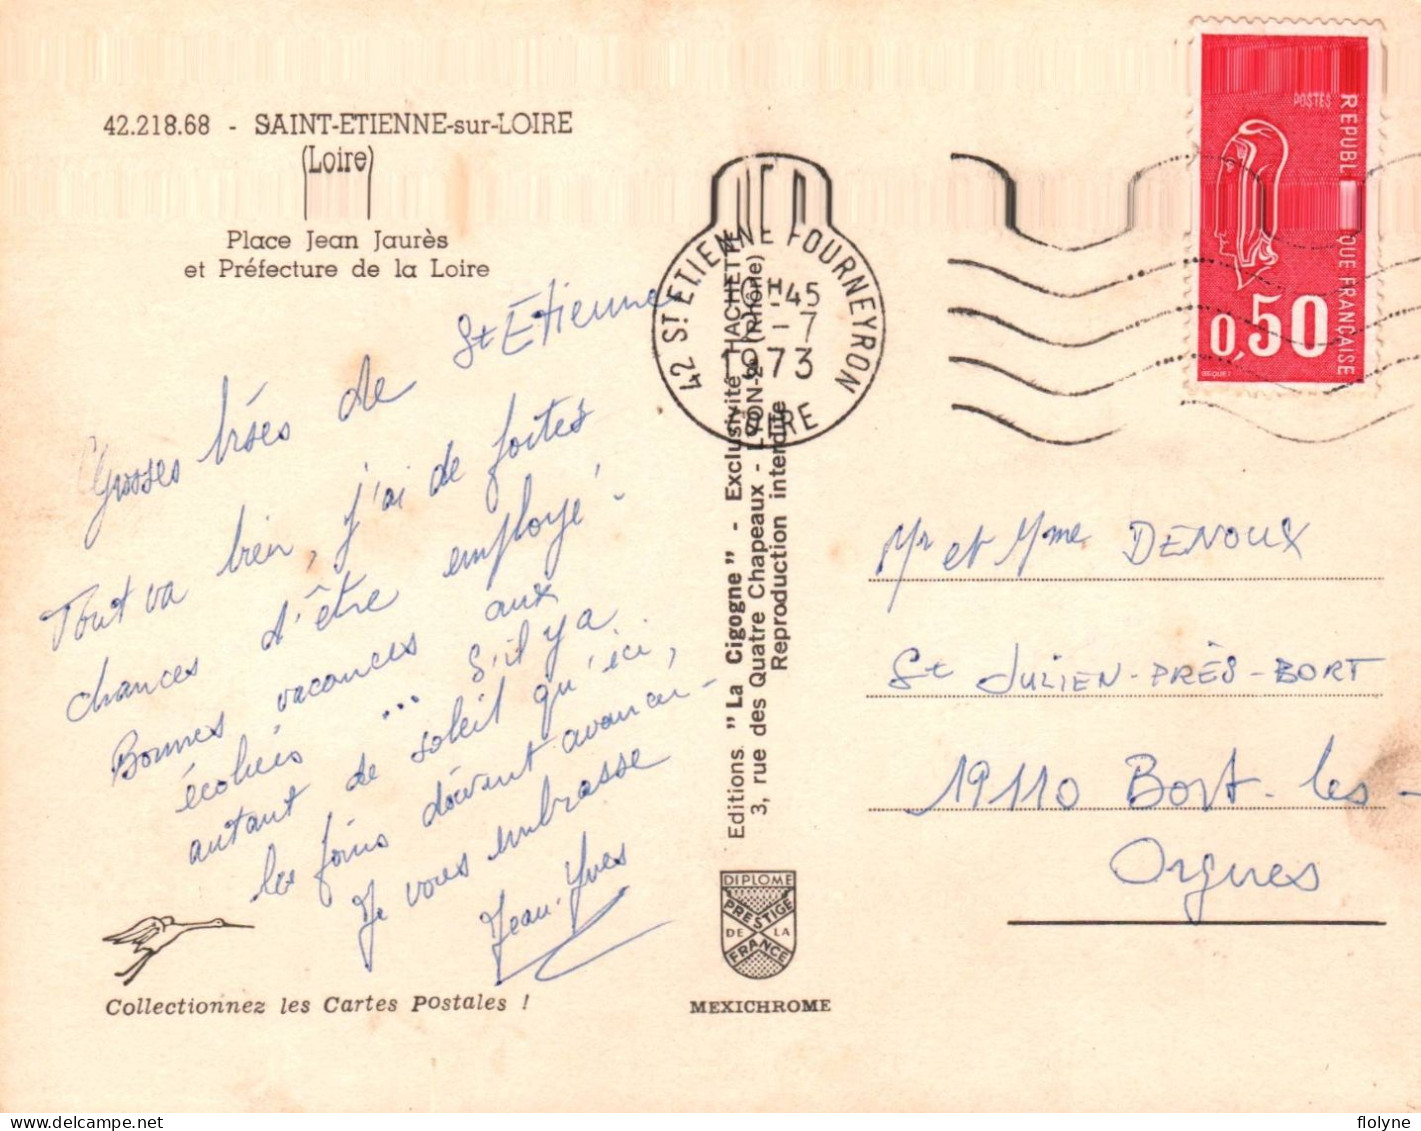 42.218.68 - SAINT-ETIENNE-sur-LOIRE
(Loire)
Place Jean Jaurès
et Préfecture de la Loire
Grosses bises de St Etienne
Tout va bien, j'ai de fortes
chances d'être employé.
Bonnes vacances aux
écoliers ... S'il y a
autant de soleil qu'ici,
les foins doivent avancer.
Je vous embrasse
Jean-Yves
Collectionnez les Cartes Postales !
42 ST ETIENNE FOURNEYRON
H 45
-7
1973
LOIRE
Editions "La Cigogne" - Exclusivité HACHETTE
3, rue des Quatre Chapeaux - LYON-2e (Rhône)
Reproduction interdite
DIPLOME
PRESTIGE
DE LA
FRANCE
MEXICHROME
POSTES
REPUBLIQUE FRANÇAISE
0,50
BEQUET
Mr et Mme DENOUX
St JULIEN-PRÈS-BORT
19110 Bort-les-
Orgues
folyne